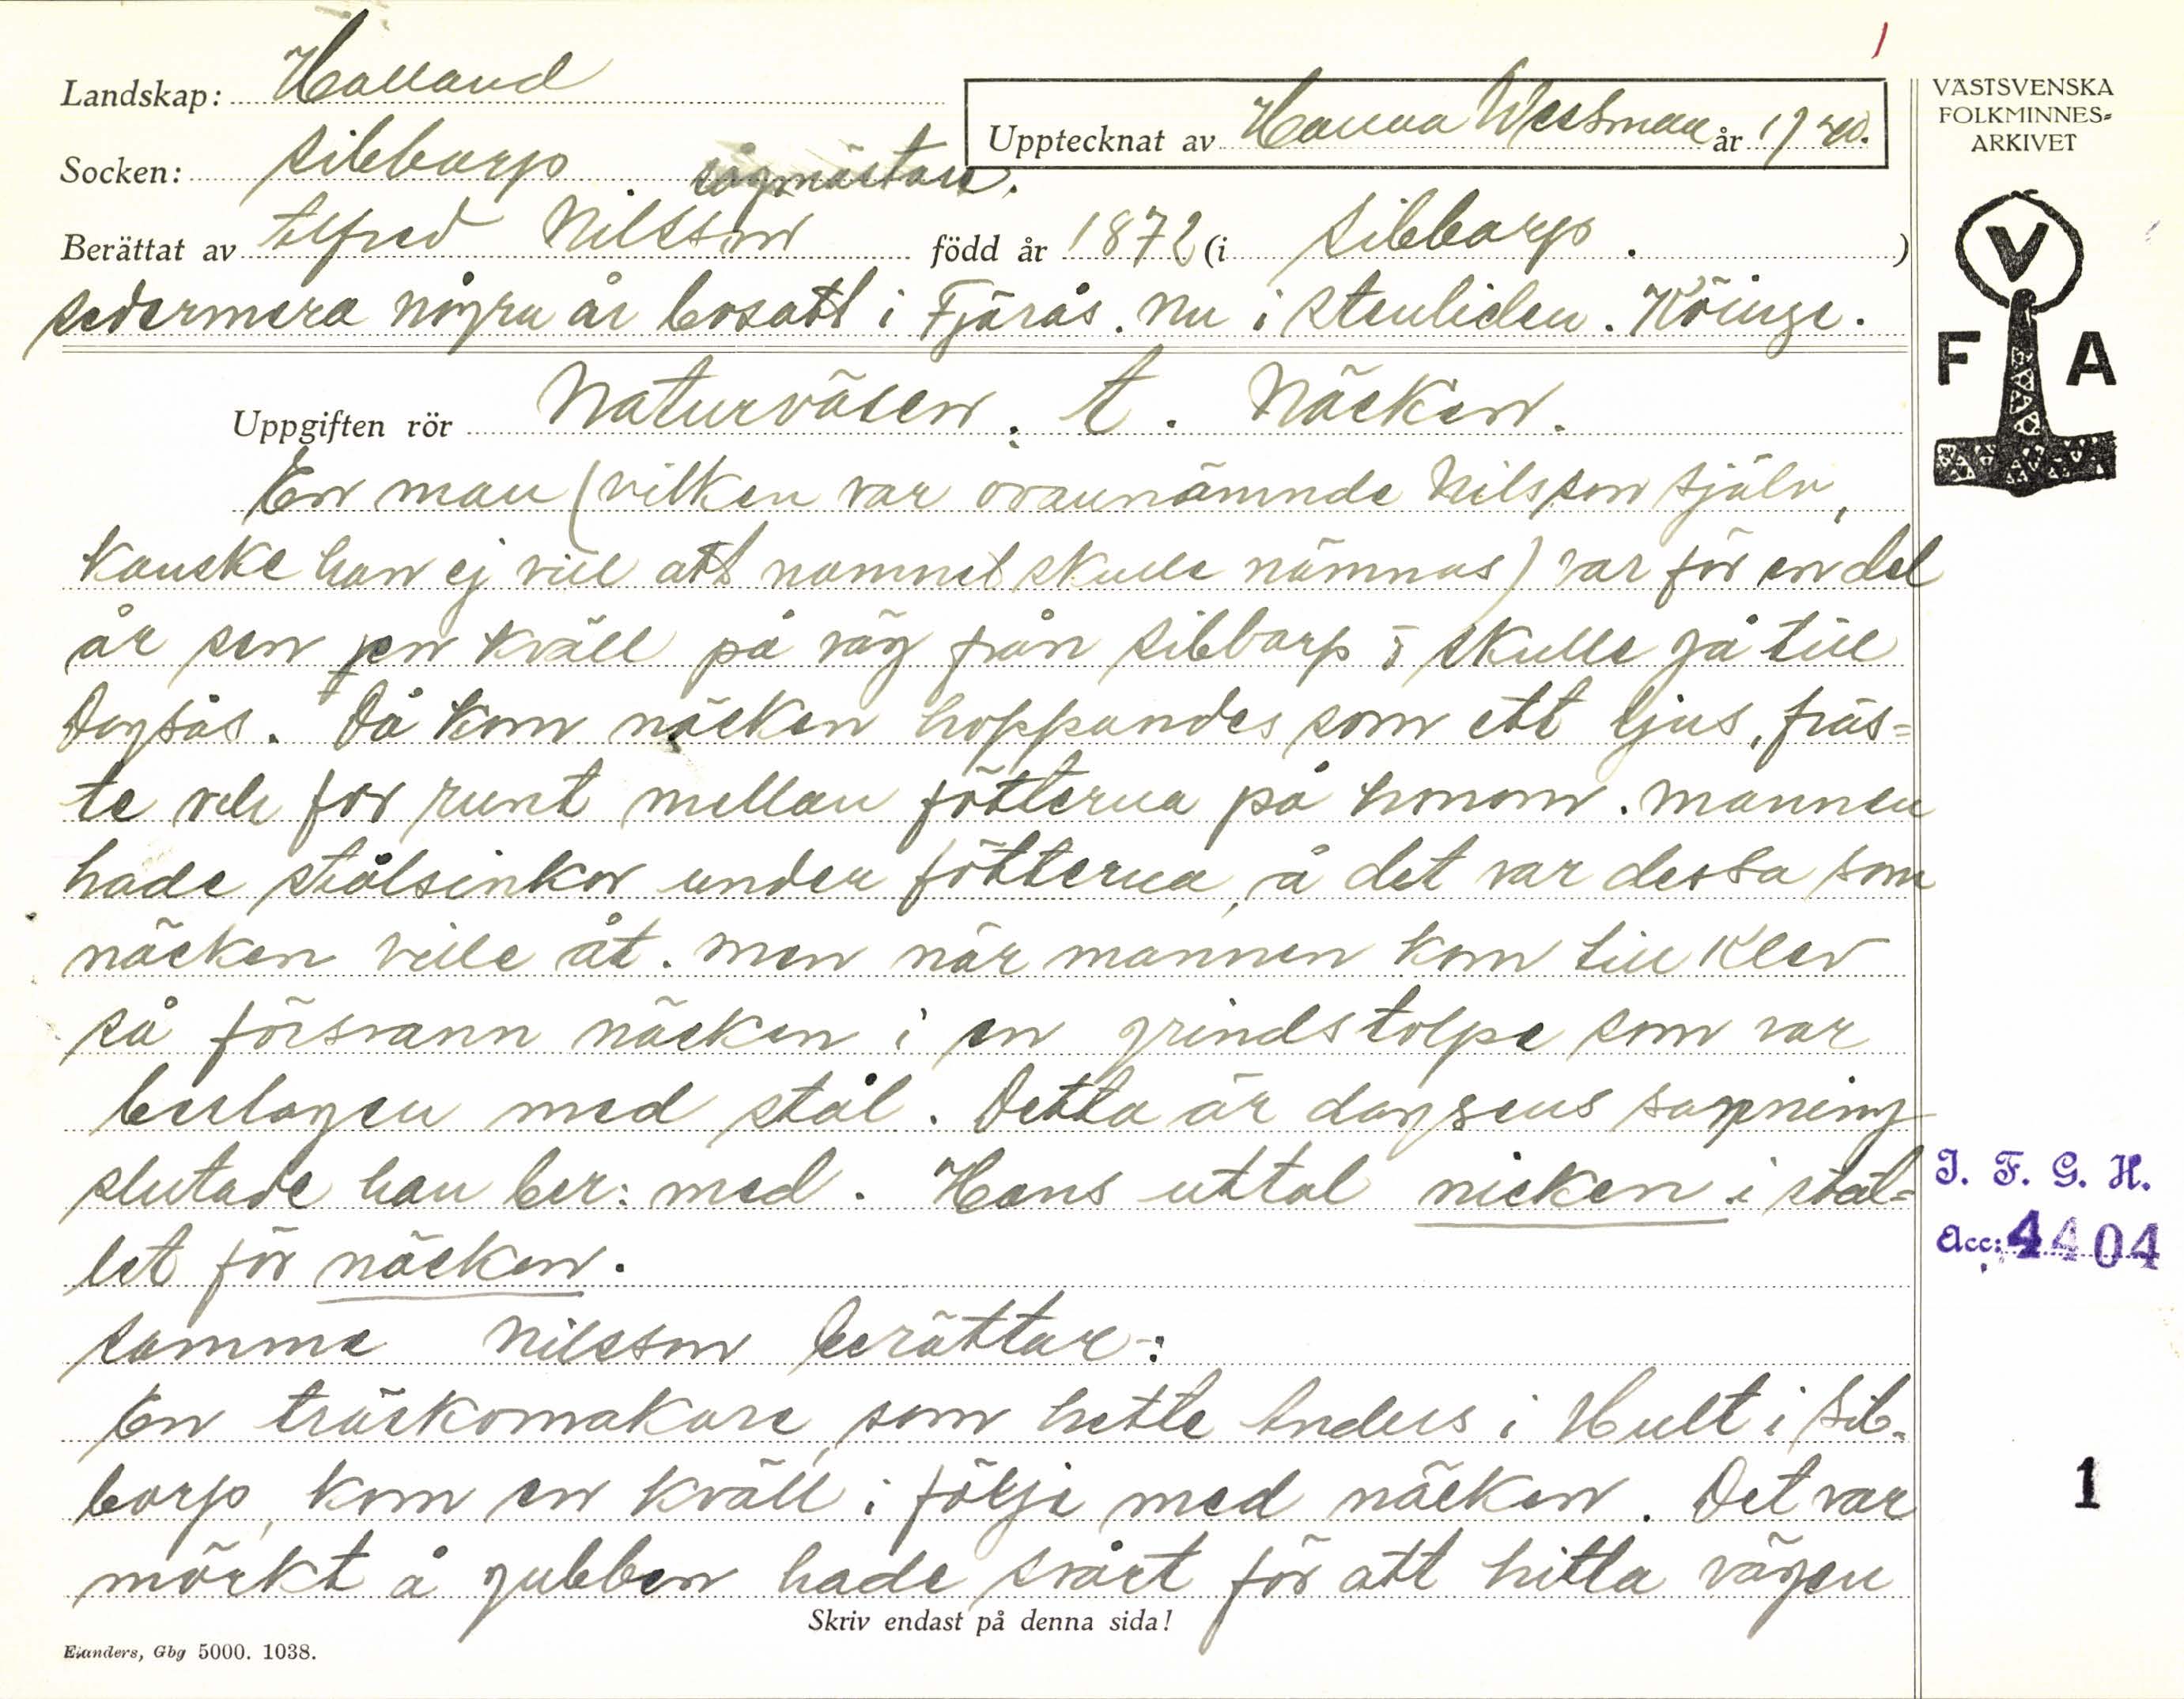 1
Landskap: Halland
Upptecknat av Hanna Wessman år 1940.
VÄSTSVENSKA
FOLKMINNES=
ARKIVET
Socken: Sibbarp sågmästare.
Berättat av Alfred Nilsson född år 1872 (i Sibbarp. )
sedermera några år bosatt i Fjärås. Nu i Stenliden. Köinge.
V
F A
Uppgiften rör Naturväsen. A. Näcken.
En man (vilken var ovannämnde Nilsson själv,
kanske han ej vill att namnet skulle nämnas) var för en del
år sen en kväll på väg från Sibbarp å skulle gå till
Dagsås. Då kom näcken hoppandes som ett ljus, fräs=
te och for runt mellan fötterna på honom. Mannen
hade stålsinkor under fötterna, å det var dessa som
näcken ville åt. Men när mannen kom till Klev
så försvann näcken i en grindstolpe som var
beslagen med stål. Detta är dagsens sanning
slutade han ber: med. Hans uttal nicken i stäl=
let för näcken.
Samme Nilsson berättar:
En träskomakare, som hette Anders i Hult i Sib=
barp, kom en kväll i följe med näcken. Det var
mörkt å gubben hade svårt för att hitta vägen
I. F. G. H.
Acc: 4404
1
Skriv endast på denna sida!
Elanders, Gbg 5000. 1038.